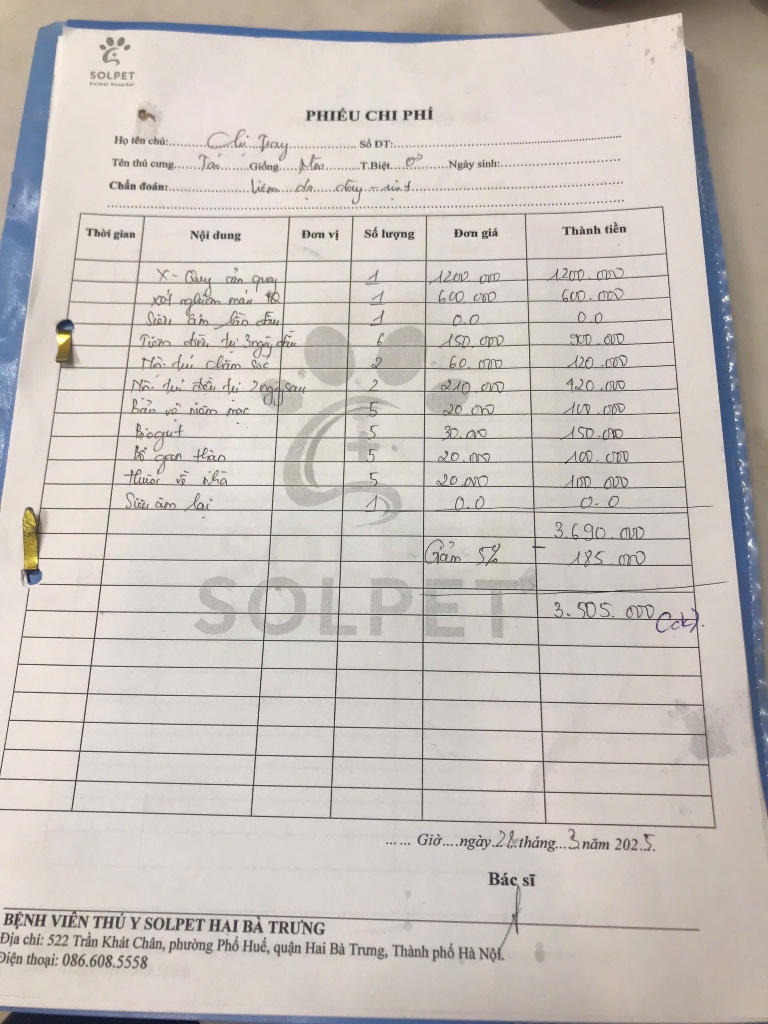 SOLPET
Animal Hospital
PHIẾU CHI PHÍ
Họ tên chủ: Chị Trang Số ĐT:
Tên thú cưng Táo Giống Mèo T.Biệt Ngày sinh:
Chẩn đoán: Viêm dạ dày - ruột
Thời gian Nội dung Đơn vị Số lượng Đơn giá Thành tiền
X-Quy cản quay 1 1200.000 1200.000
xét nghiệm máu 1 600.000 600.000
Siêu âm lần đầu 1 0.0 0.0
Tiêm điều trị 3 ngày đầu 6 150.000 900.000
Nội trú chăm sóc 2 60.000 120.000
Nội trú điều trị 2 ngày sau 2 210.000 420.000
Bảo vệ niêm mạc 5 20.000 100.000
Biogut 5 30.000 150.000
Bổ gan thận 5 20.000 100.000
thuốc về nhà 5 20.000 100.000
Siêu âm lại 1 0.0 0.0
3.690.000
Giảm 5% - 185.000
3.505.000 (ck).
SOLPET
...... Giờ....ngày 28 tháng...3 năm 2025.
Bác sĩ
BỆNH VIỆN THÚ Y SOLPET HAI BÀ TRƯNG
Địa chỉ: 522 Trần Khát Chân, phường Phố Huế, quận Hai Bà Trưng, Thành phố Hà Nội.
Điện thoại: 086.608.5558